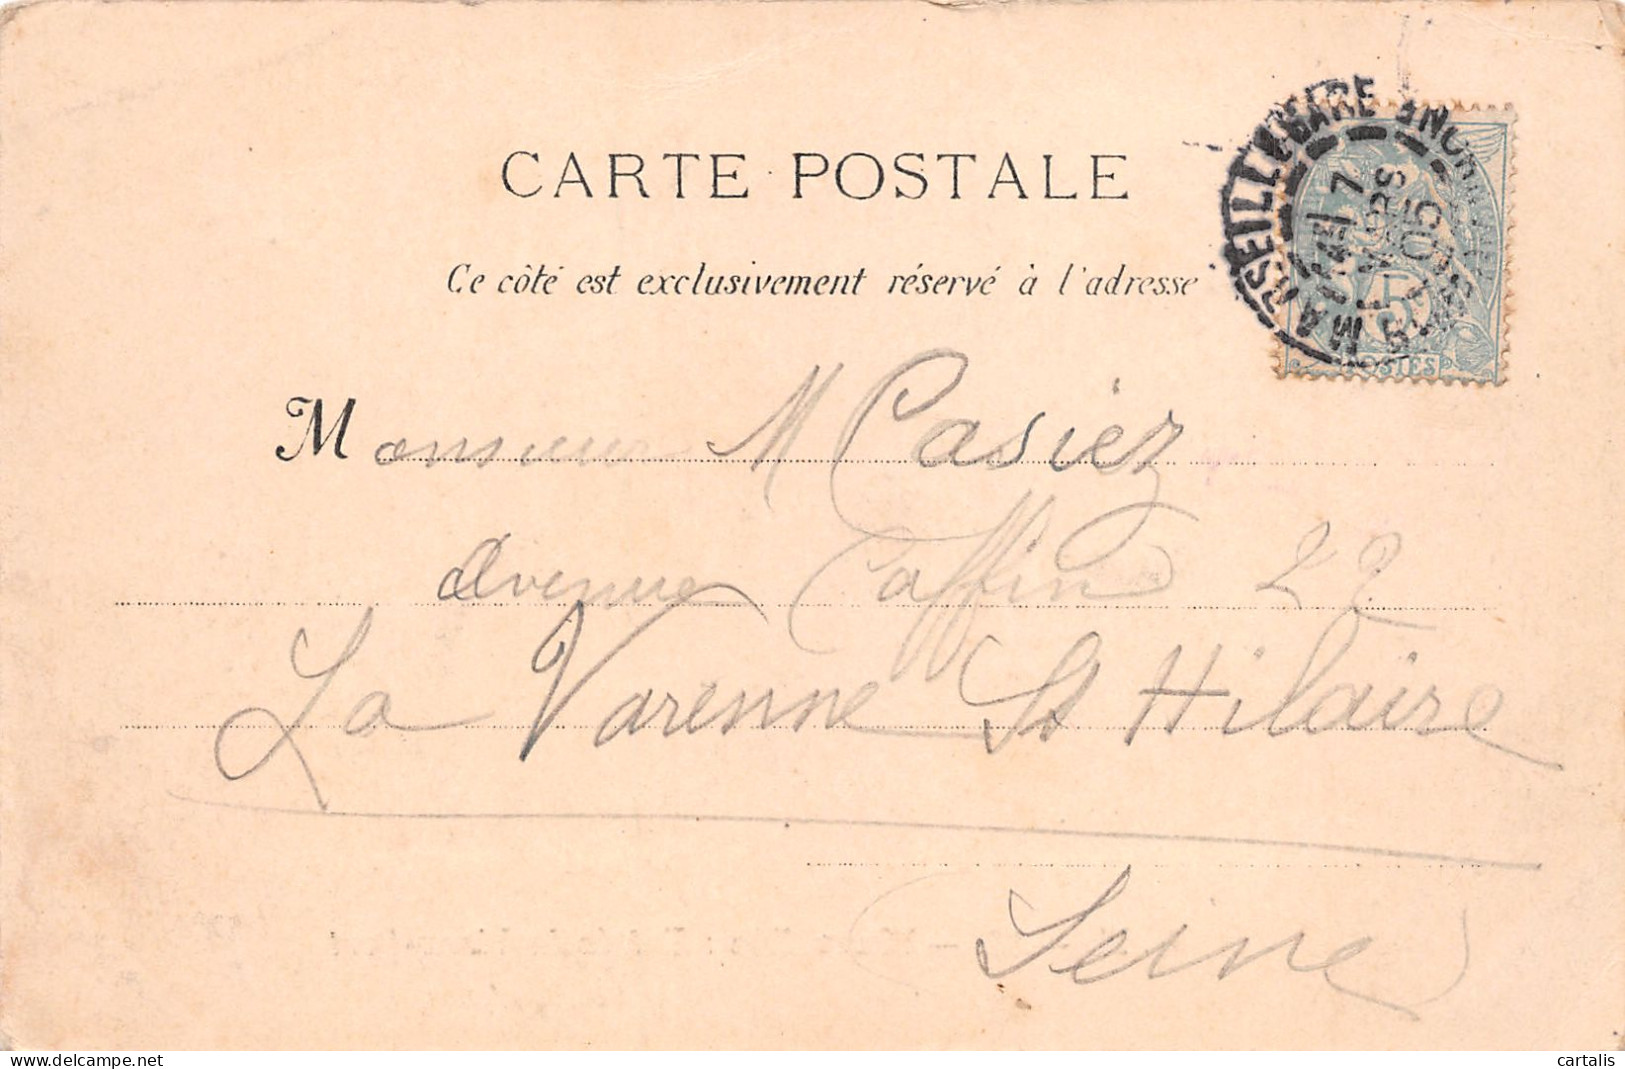 CARTE POSTALE
Ce côté est exclusivement réservé à l'adresse
MARSEILLE GARE
7
MARS
05
5
POSTES
Monsieur M Casiez
Avenue Caffin 22
La Varenne St Hilaire
Seine
www.delcampe.net
cartalis